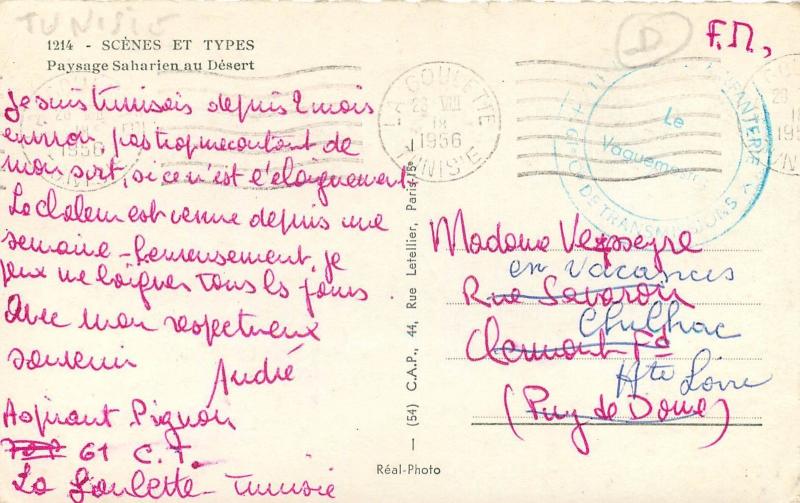 TUNISIE
1214 - SCÈNES ET TYPES
Paysage Saharien au Désert
Je suis tunisois depuis 2 mois
environ pas trop mécontent de
mon sort, si ce n'est l'éloignement.
La chaleur est venue depuis une
semaine - heureusement, je
peux me baigner tous les jours.
Avec mon respectueux
souvenir
André
Aspirant Pignon
61 C.T.
La Goulette - Tunisie
(54) C.A.P., 44, Rue Letellier, Paris-15e
Réal-Photo
D
F.M,
LA GOULETTE
28 VIII
18
1956
TUNISIE
INFANTERIE
Le
DE TRANSMISSIONS
Madame Veysseyre
en vacances
Rue Savaron
Chilhac
Clermont Fd
Hte Loire
(Puy de Dôme)